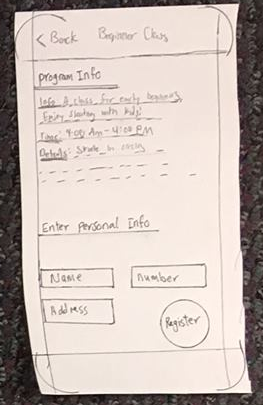 < Back Beginner Class
Program Info
Info: A class for early beginners,
Enjoy skating with kids!
Time: 9:00 Am - 4:00 PM
Details: Skate in
Enter Personal Info
Name
Number
Address
Register